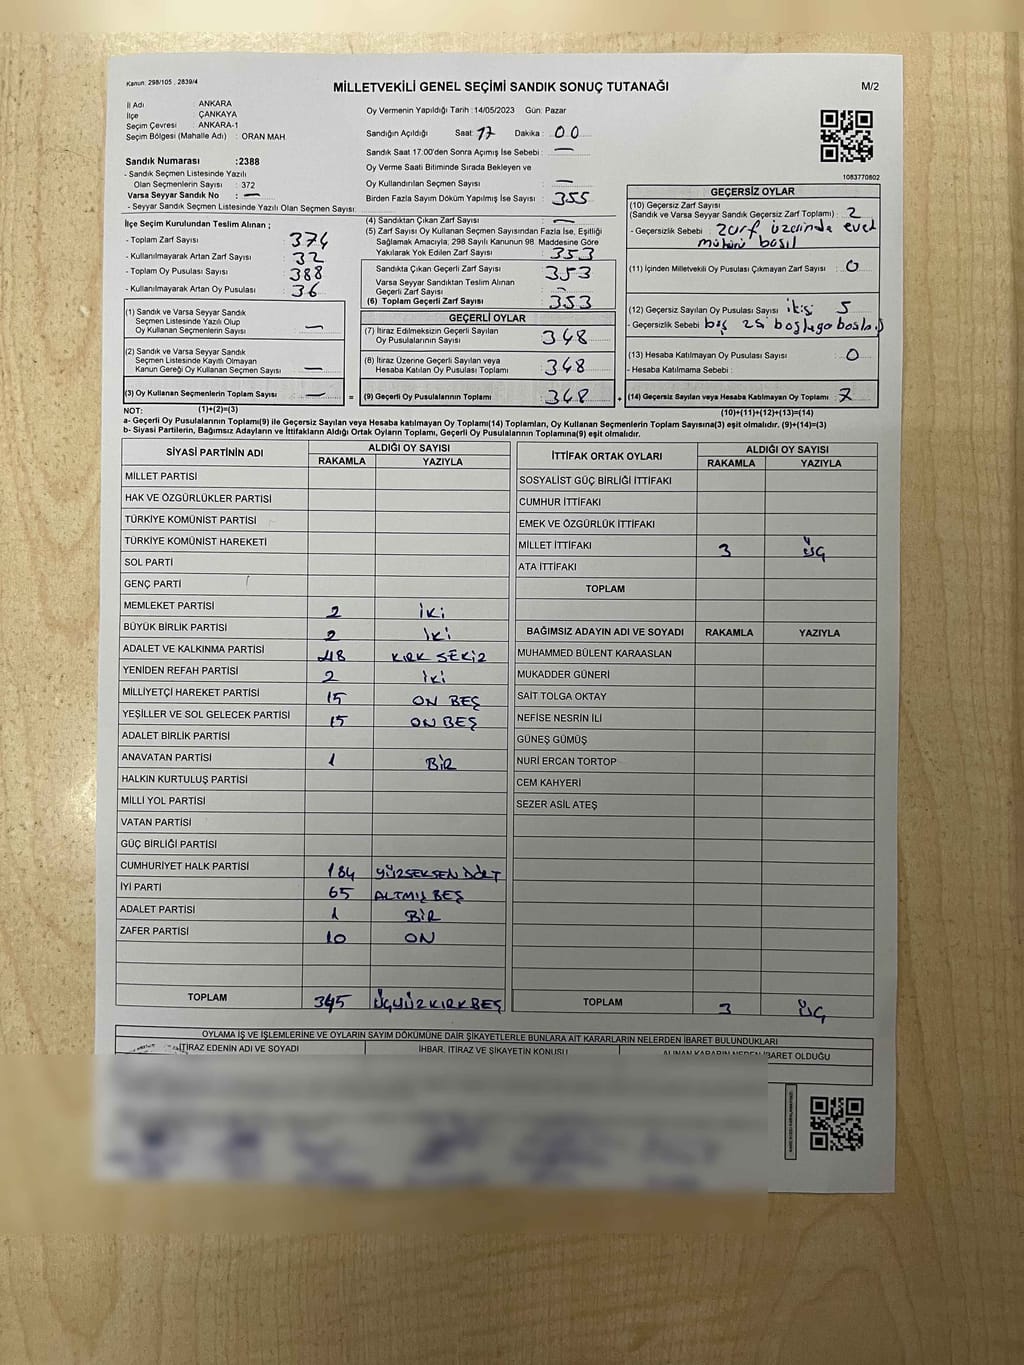 Kanun: 298/105 , 2839/4
MİLLETVEKİLİ GENEL SEÇİMİ SANDIK SONUÇ TUTANAĞI
M/2
İl Adı : ANKARA
İlçe : ÇANKAYA
Seçim Çevresi : ANKARA-1
Seçim Bölgesi (Mahalle Adı) : ORAN MAH
Sandık Numarası :2388
- Sandık Seçmen Listesinde Yazılı
Olan Seçmenlerin Sayısı : 372
Varsa Seyyar Sandık No : —
- Seyyar Sandık Listesinde Yazılı Olan Seçmen Sayısı:
Oy Vermenin Yapıldığı Tarih :14/05/2023 Gün: Pazar
Sandığın Açıldığı Saat: 17 Dakika : 00
Sandık Saat 17:00'den Sonra Açımış İse Sebebi : —
Oy Verme Saati Bitiminde Sırada Bekleyen ve
Oy Kullandırılan Seçmen Sayısı : —
Birden Fazla Sayım Döküm Yapılmış İse Sayısı : 355
1083770802
İlçe Seçim Kurulundan Teslim Alınan ;
- Toplam Zarf Sayısı : 374
- Kullanılmayarak Artan Zarf Sayısı : 32
- Toplam Oy Pusulası Sayısı : 388
- Kullanılmayarak Artan Oy Pusulası : 36
(1) Sandık ve Varsa Seyyar Sandık
Seçmen Listesinde Yazılı Olup
Oy Kullanan Seçmenlerin Sayısı : —
(2) Sandık ve Varsa Seyyar Sandık
Seçmen Listesinde Kayıtlı Olmayan
Kanun Gereği Oy Kullanan Seçmen Sayısı : —
(3) Oy Kullanan Seçmenlerin Toplam Sayısı : —
(1)+(2)=(3)
(4) Sandıktan Çıkan Zarf Sayısı : —
(5) Zarf Sayısı Oy Kullanan Seçmen Sayısından Fazla İse, Eşitliği
Sağlamak Amacıyla; 298 Sayılı Kanunun 98. Maddesine Göre
Yakılarak Yok Edilen Zarf Sayısı : 353
Sandıkta Çıkan Geçerli Zarf Sayısı : 353
Varsa Seyyar Sandıktan Teslim Alınan
Geçerli Zarf Sayısı : —
(6) Toplam Geçerli Zarf Sayısı : 353
GEÇERLİ OYLAR
(7) İtiraz Edilmeksizin Geçerli Sayılan
Oy Pusulalarının Sayısı : 348
(8) İtiraz Üzerine Geçerli Sayılan veya
Hesaba Katılan Oy Pusulası Toplamı : 348
= (9) Geçerli Oy Pusulalarının Toplamı : 348 +
GEÇERSİZ OYLAR
(10) Geçersiz Zarf Sayısı
(Sandık ve Varsa Seyyar Sandık Geçersiz Zarf Toplamı) : 2
- Geçersizlik Sebebi : zarf üzerinde evet
mührü basılı
(11) İçinden Milletvekili Oy Pusulası Çıkmayan Zarf Sayısı : 0
(12) Geçersiz Sayılan Oy Pusulası Sayısı : 5
- Geçersizlik Sebebi : boş
(13) Hesaba Katılmayan Oy Pusulası Sayısı : 0
- Hesaba Katılmama Sebebi :
(14) Geçersiz Sayılan veya Hesaba Katılmayan Oy Toplamı : 7
(10)+(11)+(12)+(13)=(14)
NOT:
a- Geçerli Oy Pusulaları Toplamı(9) ile Geçersiz Sayılan veya Hesaba katılmayan Oy Toplamı(14) Toplamları, Oy Kullanan Seçmenlerin Toplam Sayısına(3) eşit olmalıdır. (9)+(14)=(3)
b- Siyasi Partilerin, Bağımsız Adayların ve İttifakların Aldığı Ortak Oyların Toplamı, Geçerli Oy Pusulalarının Toplamına(9) eşit olmalıdır.
SİYASİ PARTİNİN ADI ALDIĞI OY SAYISI
RAKAMLA YAZIYLA
MİLLET PARTİSİ
HAK VE ÖZGÜRLÜKLER PARTİSİ
TÜRKİYE KOMÜNİST PARTİSİ
TÜRKİYE KOMÜNİST HAREKETİ
SOL PARTİ
GENÇ PARTİ
MEMLEKET PARTİSİ 2 İKİ
BÜYÜK BİRLİK PARTİSİ 2 İKİ
ADALET VE KALKINMA PARTİSİ 48 KIRK SEKİZ
YENİDEN REFAH PARTİSİ 2 İKİ
MİLLİYETÇİ HAREKET PARTİSİ 15 ON BEŞ
YEŞİLLER VE SOL GELECEK PARTİSİ 15 ON BEŞ
ADALET BİRLİK PARTİSİ
ANAVATAN PARTİSİ 1 BİR
HALKIN KURTULUŞ PARTİSİ
MİLLİ YOL PARTİSİ
VATAN PARTİSİ
GÜÇ BİRLİĞİ PARTİSİ
CUMHURİYET HALK PARTİSİ 184 YÜZSEKSEN DÖRT
İYİ PARTİ 65 ALTMIŞ BEŞ
ADALET PARTİSİ 1 BİR
ZAFER PARTİSİ 10 ON
TOPLAM 345 ÜÇYÜZKIRKBEŞ
İTTİFAK ORTAK OYLARI ALDIĞI OY SAYISI
RAKAMLA YAZIYLA
SOSYALİST GÜÇ BİRLİĞİ İTTİFAKI
CUMHUR İTTİFAKI
EMEK VE ÖZGÜRLÜK İTTİFAKI
MİLLET İTTİFAKI 3 ÜÇ
ATA İTTİFAKI
TOPLAM
BAĞIMSIZ ADAYIN ADI VE SOYADI RAKAMLA YAZIYLA
MUHAMMED BÜLENT KARAASLAN
MUKADDER GÜNERİ
SAİT TOLGA OKTAY
NEFİSE NESRİN İLİ
GÜNEŞ GÜMÜŞ
NURİ ERCAN TORTOP
CEM KAHYERİ
SEZER ASİL ATEŞ
TOPLAM 3 ÜÇ
OYLAMA İŞ VE İŞLEMLERİNE VE OYLARIN SAYIM DÖKÜMÜNE DAİR ŞİKAYETLERLE BUNLARA AİT KARARLARIN NELERDEN İBARET BULUNDUKLARI
İTİRAZ EDENİN ADI VE SOYADI İHBAR, İTİRAZ VE ŞİKAYETİN KONUSU ALINAN KARARIN NEDEN İBARET OLDUĞU